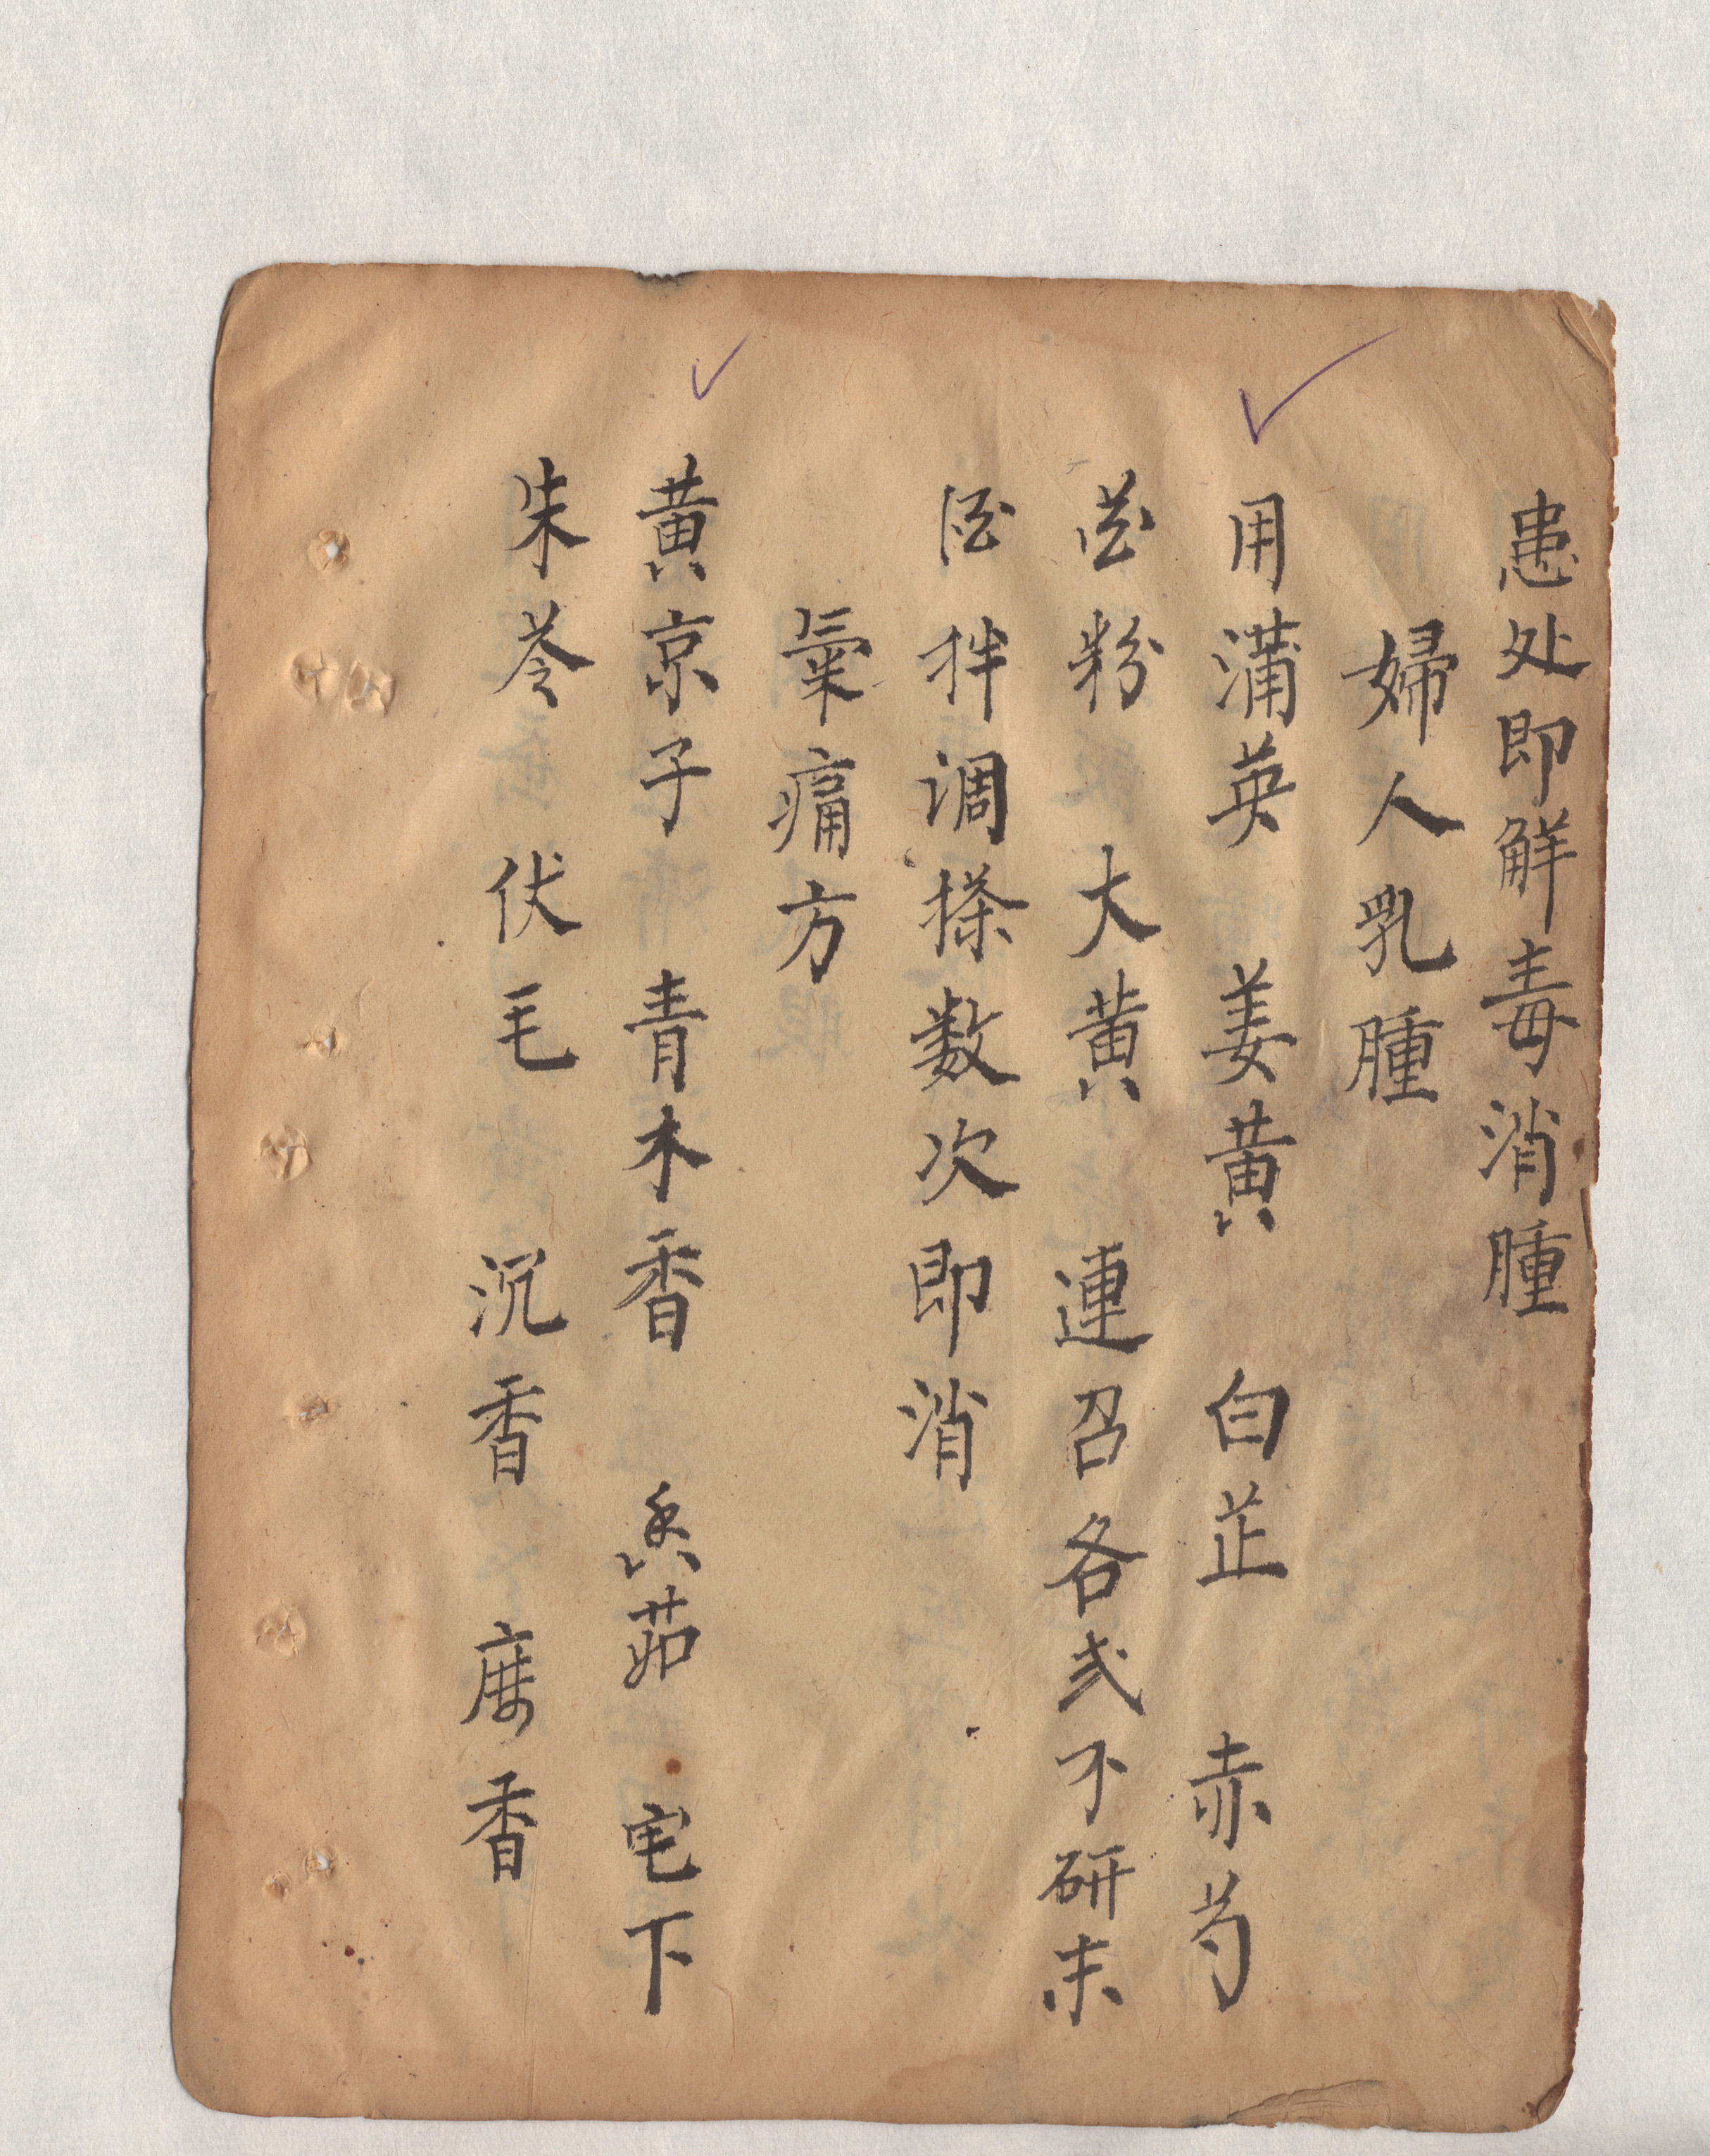 患处即解毒消腫
婦人乳腫
用蒲英 姜黄 白芷 赤芍
花粉 大黄 連召各弍不研末
酒拌调搽数次即消
氣痛方
黄京子 青木香 茹 下
朱苓 伏毛 沉香 香